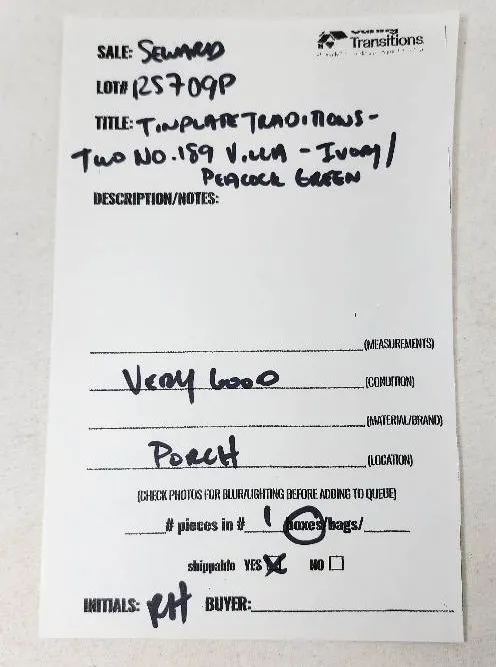 Caring
Transitions
SALE: SEWARD
LOT# RS709P
TITLE: TINPLATE TRADITIONS-
TWO NO.189 VILLA - IVORY/
PEACOCK GREEN
DESCRIPTION/NOTES:
(MEASUREMENTS)
VERY GOOD (CONDITION)
(MATERIAL/BRAND)
PORCH (LOCATION)
(CHECK PHOTOS FOR BLUR/LIGHTING BEFORE ADDING TO QUEUE)
# pieces in # 1 boxes/bags/
shippable YES NO
INITIALS: RH BUYER: